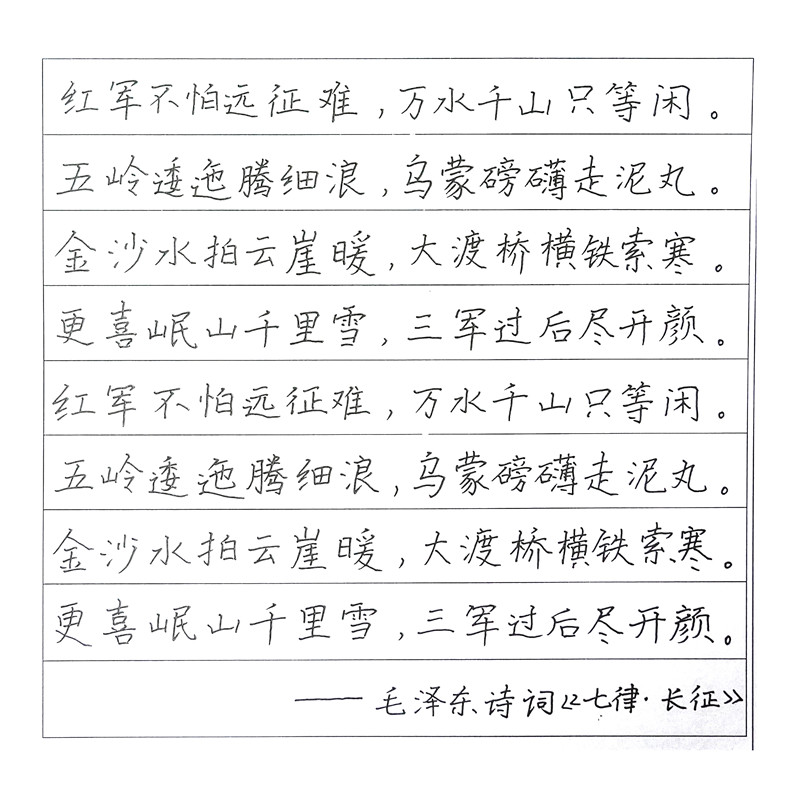 红军不怕远征难,万水千山只等闲。
五岭逶迤腾细浪,乌蒙磅礴走泥丸。
金沙水拍云崖暖,大渡桥横铁索寒。
更喜岷山千里雪,三军过后尽开颜。
红军不怕远征难,万水千山只等闲。
五岭逶迤腾细浪,乌蒙磅礴走泥丸。
金沙水拍云崖暖,大渡桥横铁索寒。
更喜岷山千里雪,三军过后尽开颜。
——毛泽东诗词《七律·长征》